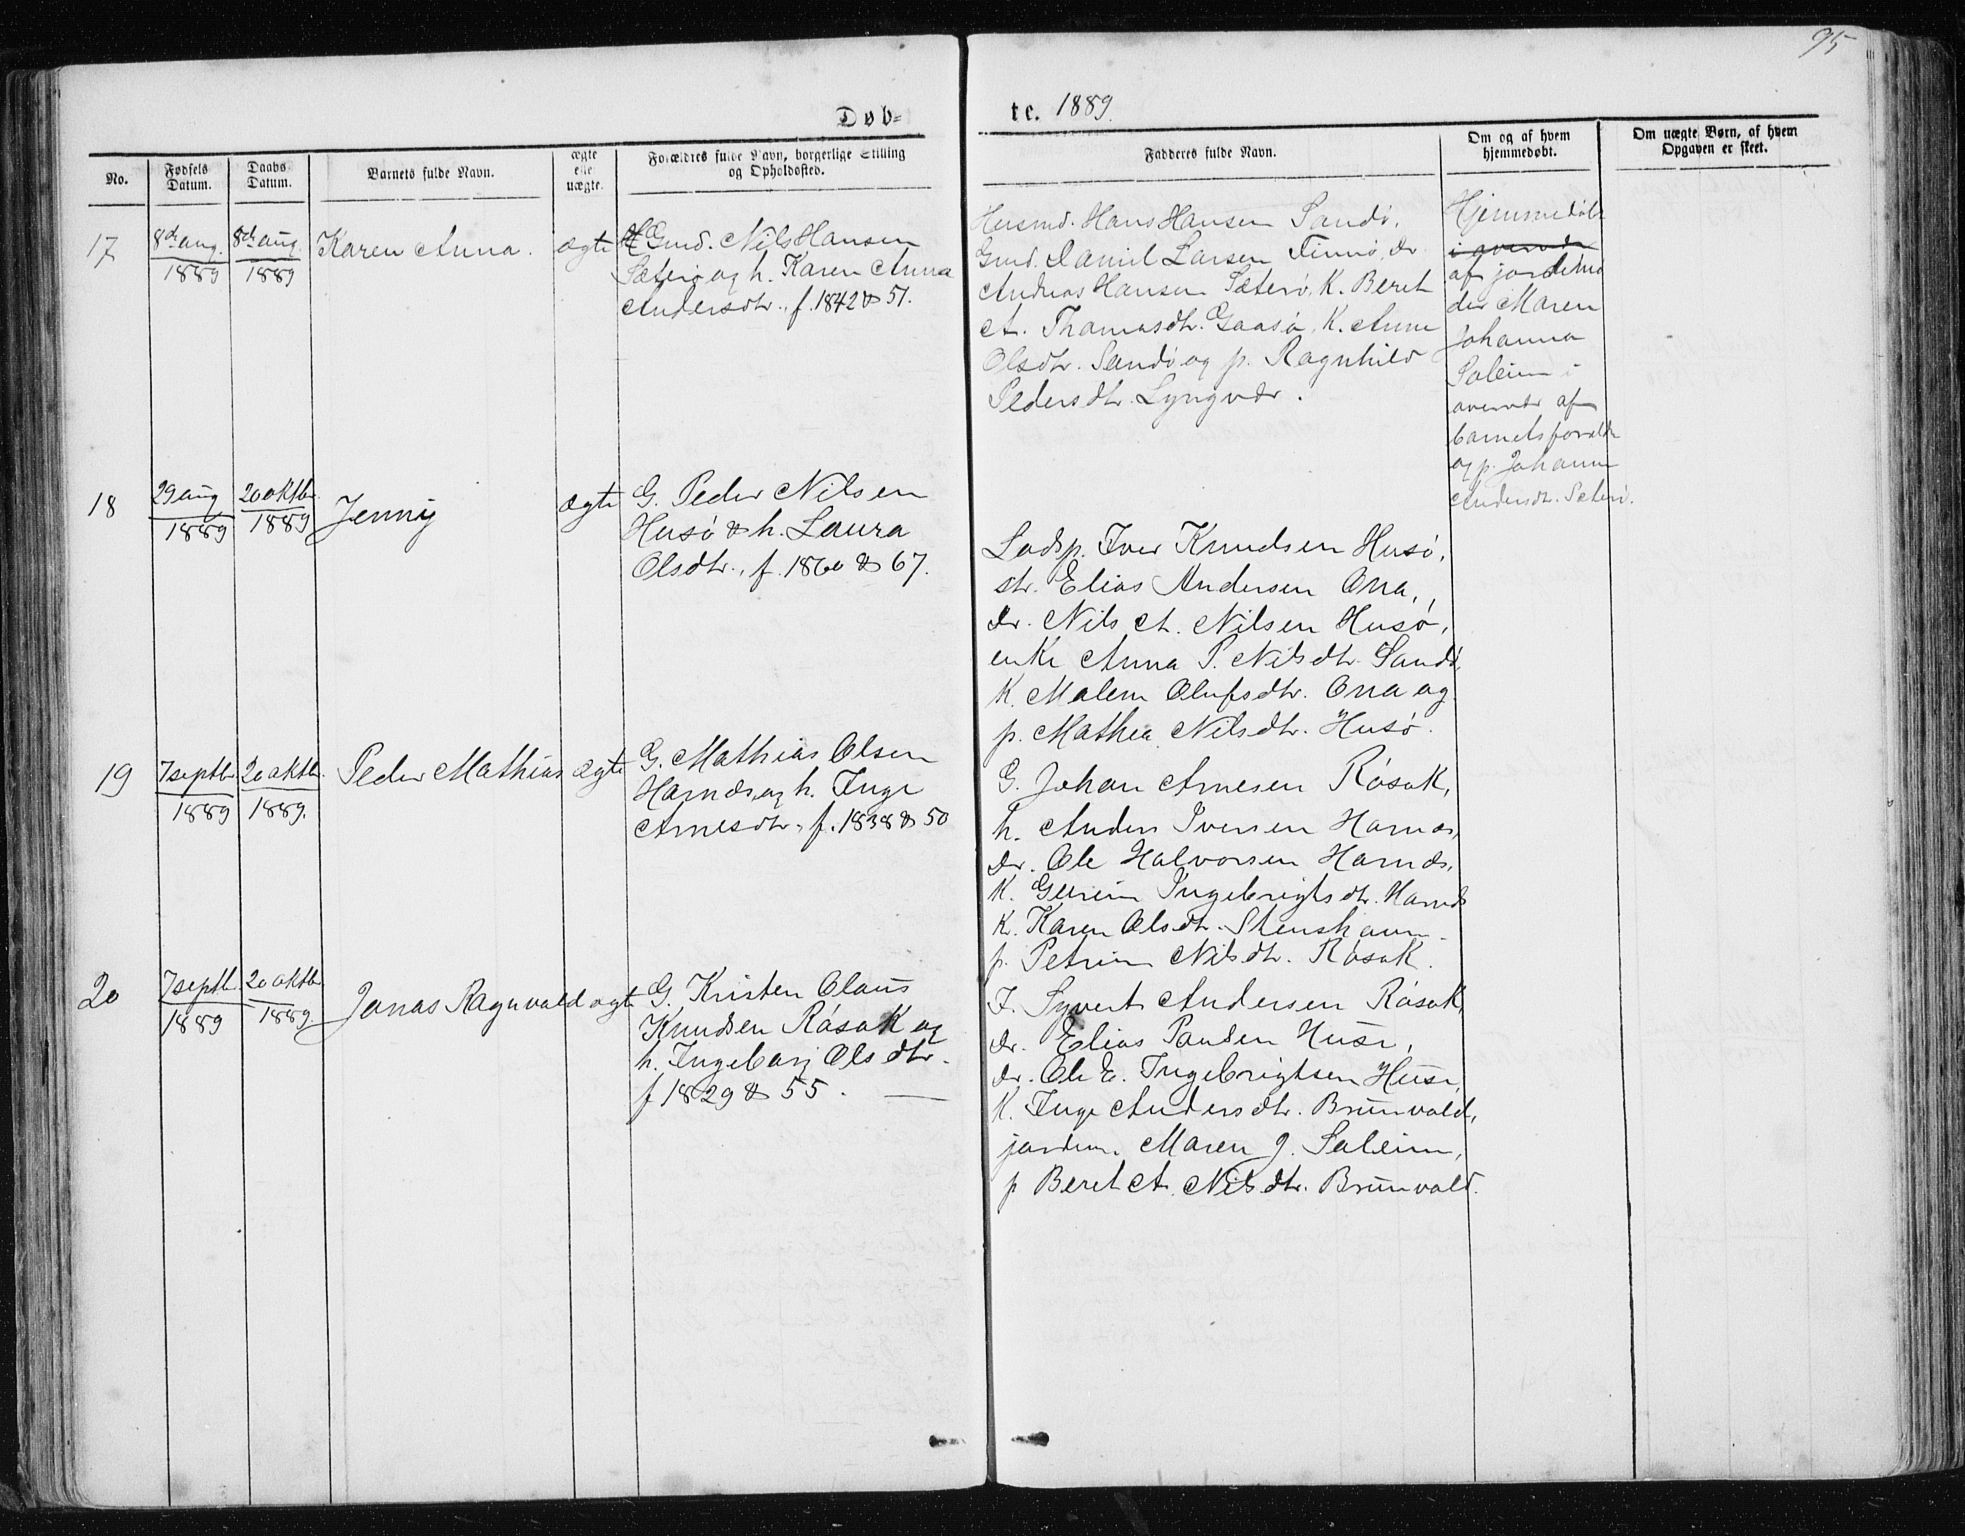 95
Døb-
te. 1889.
No.
Fødsels Datum.
Daabs Datum.
Barnets fulde Navn.
ægte eller uægte.
Forældres fulde Navn, borgerlige Stilling og Opholdssted.
Fadderes fulde Navn.
Om og af hvem hjemmedøbt.
Om uægte Børn, af hvem Opgaven er skeet.
17
8de aug. 1889
8de aug. 1889
Karen Anna.
ægte
Gmd. Nils Hansen
Sæterø og h. Karen Anna
Andersdtr., f. 1842 & 51.
Husmd. Hans Hansen Sandø,
Gmd. Daniel Larsen Finnø, dr
Andreas Hansen Sæterø, K. Beret
A. Thomasdtr. Gaasø, K. Anne
Olsdtr. Sandø og p. Ragnhild
Pedersdtr. Lyngvær.
Hjemmedøbt
af jordemo
der Maren
Johanna
Soleim i
overvær af
barnets foreldre
og p. Johanne
Andersdt. Sæterø.
18
29 aug 1889
20 oktbr. 1889
Jenny
ægte
G. Peder Nilsen
Husø & h. Laura
Olsdtr., f. 1860 & 67.
Lodsp. Iver Knudsen Husø,
str. Elias Andersen Ona,
dr. Nils A. Nilsen Husø,
enke Anna P. Nilsdtr. Sandø,
K. Malene Olufsdtr. Ona og
p. Mathea Nilsdtr. Husø.
19
7 septbr 1889
20 oktbr. 1889.
Peder Mathias
ægte
G. Mathias Olsen
Harnæs og h. Inge
Arnesdtr., f. 1838 & 50
G. Johan Arnesen Røsok,
h. Anders Iversen Harnæs,
dr. Ole Halvorsen Harnæs,
K. Gurine Ingebrigtsdtr. Harnæs
K. Karen Olsdtr. Stenshavn
p. Petrine Nilsdtr. Røsok.
20
7 septb 1889
20 oktbr 1889
Jonas Ragnvald
ægte
G. Kristen Claus
Knudsen Røsok og
h. Ingeborg Olsdtr.
f 1829 & 55.
F. Syvert Andersen Røsok,
dr. Elias Paulsen Huse,
dr. Ole E. Ingebrigtsen Huse,
K. Inge Andersdtr. Brunvold,
jordm. Maren J. Soleim,
p Beret A. Nilsdtr. Brunvold.